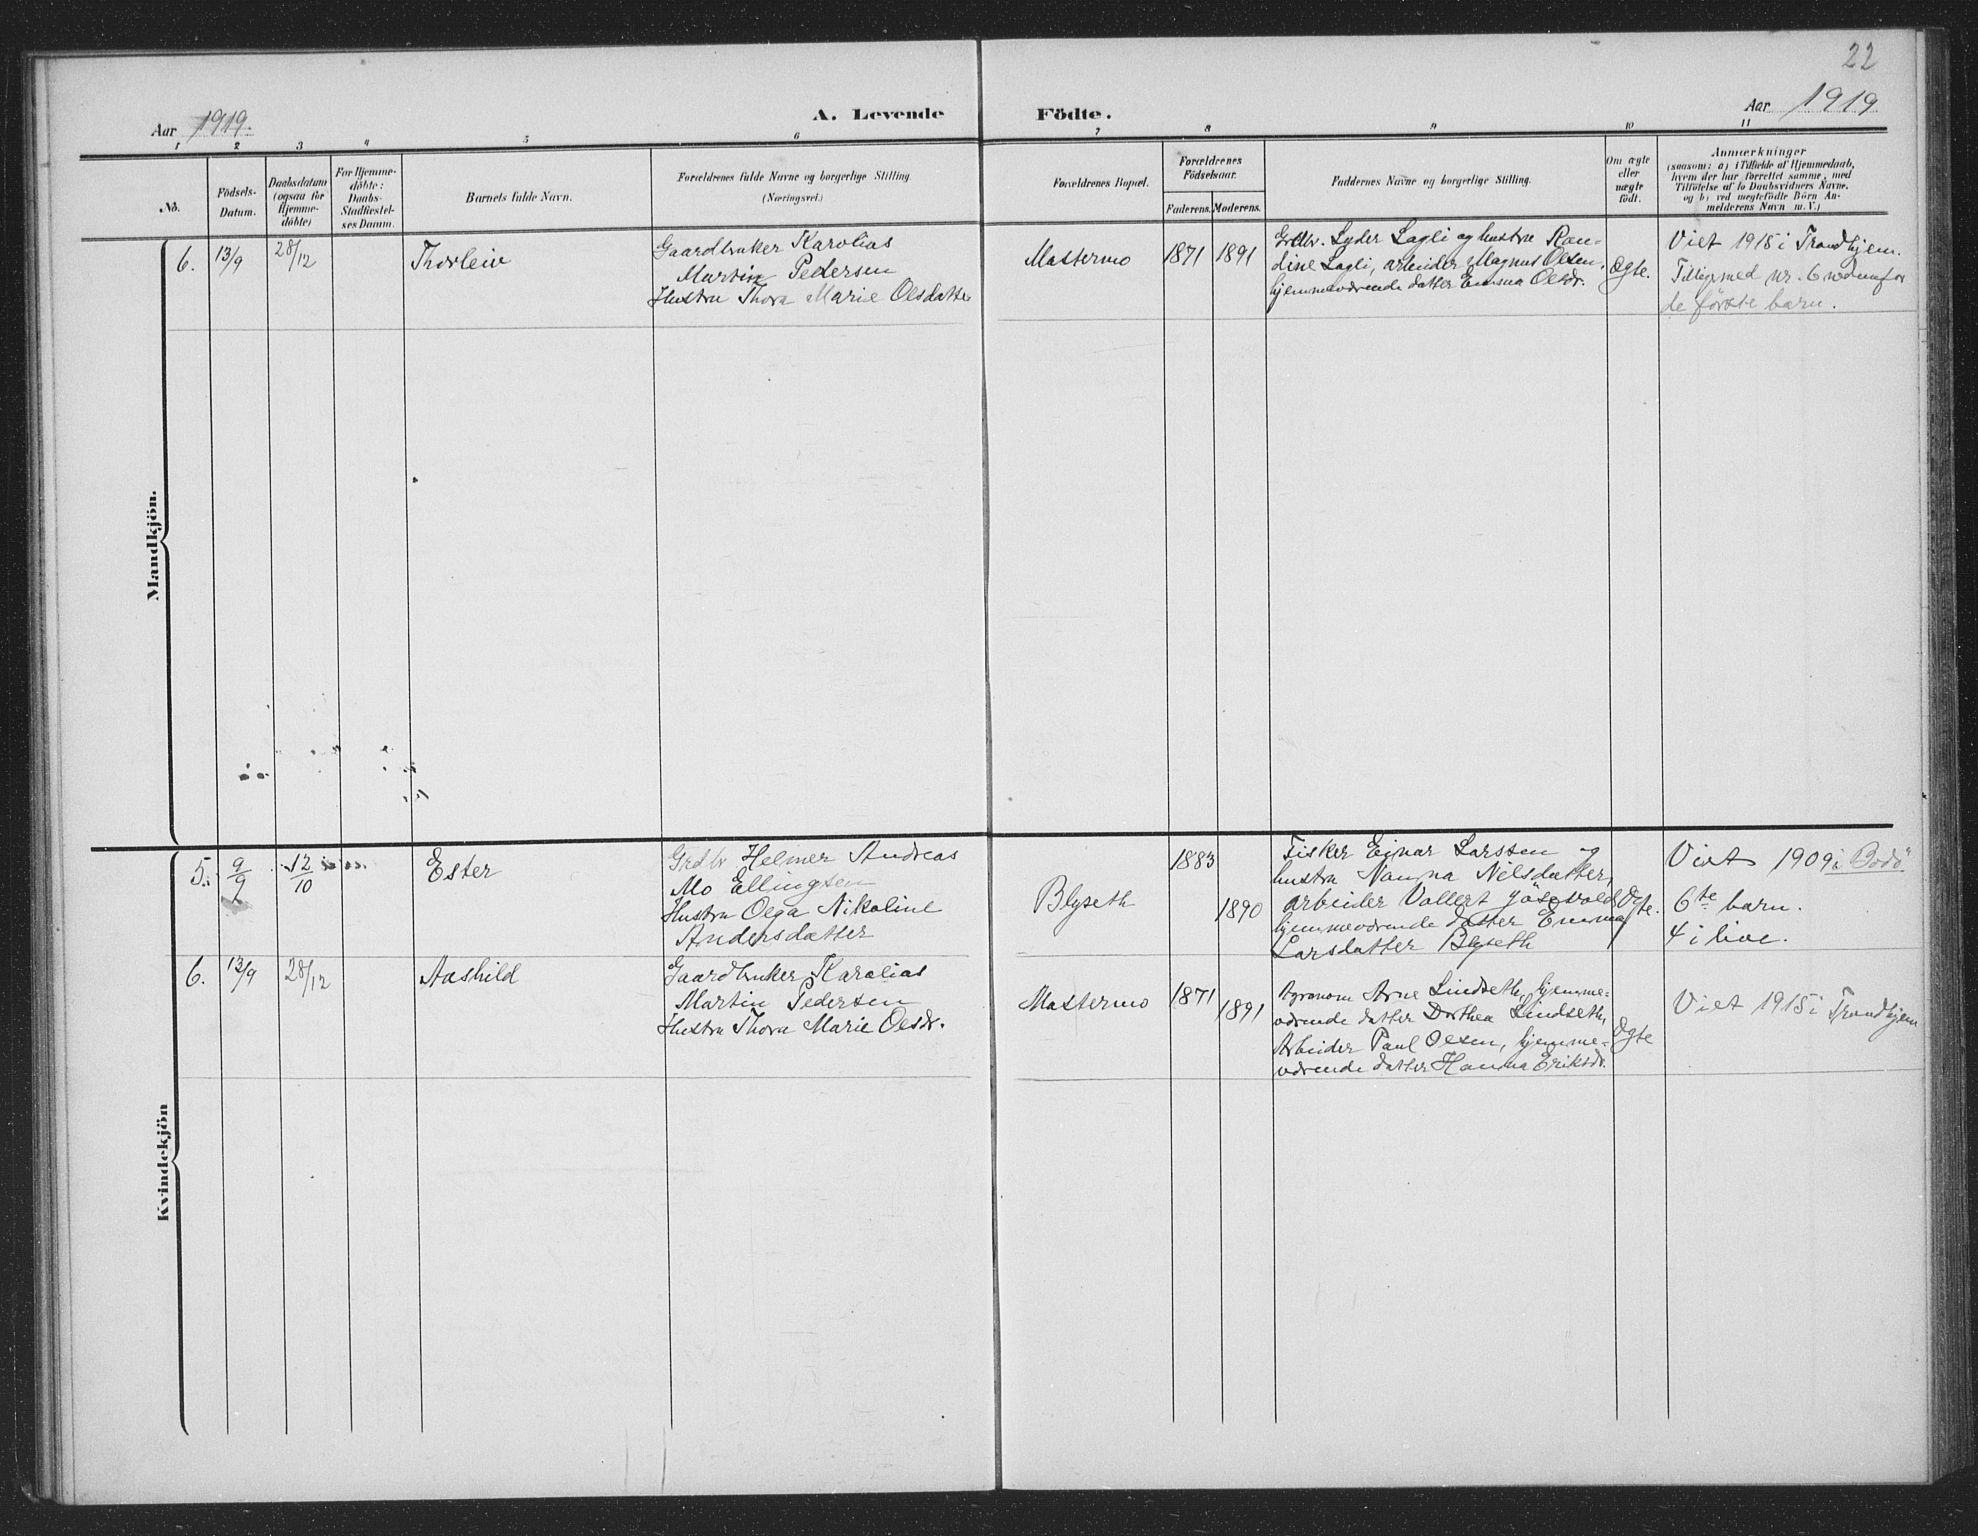 22
Aar 1919.
A. Levende Födte.
Aar 1919
1 2 3 4 5 6 7 8 9 10 11
No.
Födsels-
Datum.
Daabsdatum
(ogsaa for
Hjemme-
döbte)
For Hjemme-
döbte:
Daabs-
Stadfæstel-
ses Datum.
Barnets fulde Navn.
Forældrenes fulde Navne og borgerlige Stilling.
(Næringsvei.)
Forældrenes Bopæl.
Forældrenes
Födselsaar.
Faderens. Moderens.
Faddernes Navne og borgerlige Stilling.
Om ægte
eller
uægte
født.
Anmærkninger
(saasom: a) i Tilfælde af Hjemmedaab,
hvem der har forrettet samme, med
Tilföielse af to Daabsvidners Navne,
og b) ved uegtefödte Börn An-
melderens Navn m. V.)
Mandkjön.
6. 13/9 28/12 Thorleiv
Gaardbruker Karolius
Martin Pedersen
Hustru Thora Marie Olsdatter
Mastermo 1871 1891
Grdbr. Lyder Lagli og hustru Ran-
dine Lagli, arbeider Magnus Olsen,
hjemmeværende datter Emma Olsdr.
Ægte.
Viet 1918 i Trondhjem.
Tilligemed nr. 6 nedenfor
de første barn.
Kvindekjön
5. 9/9 12/10 Ester
Grdbr Helmer Andreas
Mo Ellingsen
Hustru Olga Nikoline
Andersdatter
Blyseth 1883 1890
Fisker Einar Larssen og
hustru Nanna Nilsdatter,
arbeider Vollert
hjemmeværende datter Emma
Larsdatter Blyseth
Ægte.
Viet 1909 i Bodö
6te barn.
4 i live.
6. 13/9 28/12 Aashild
Gaardbruker Karolius
Martin Pedersen
Hustru Thora Marie Olsdr.
Mastermo 1871 1891
Agronom Arne Lindseth, hjemme-
værende datter Dorthea Lindseth,
Arbeider Paul Olsen, hjemme-
værende datter Hanna Eriksdr.
Ægte
Viet 1915 i Trondhjem